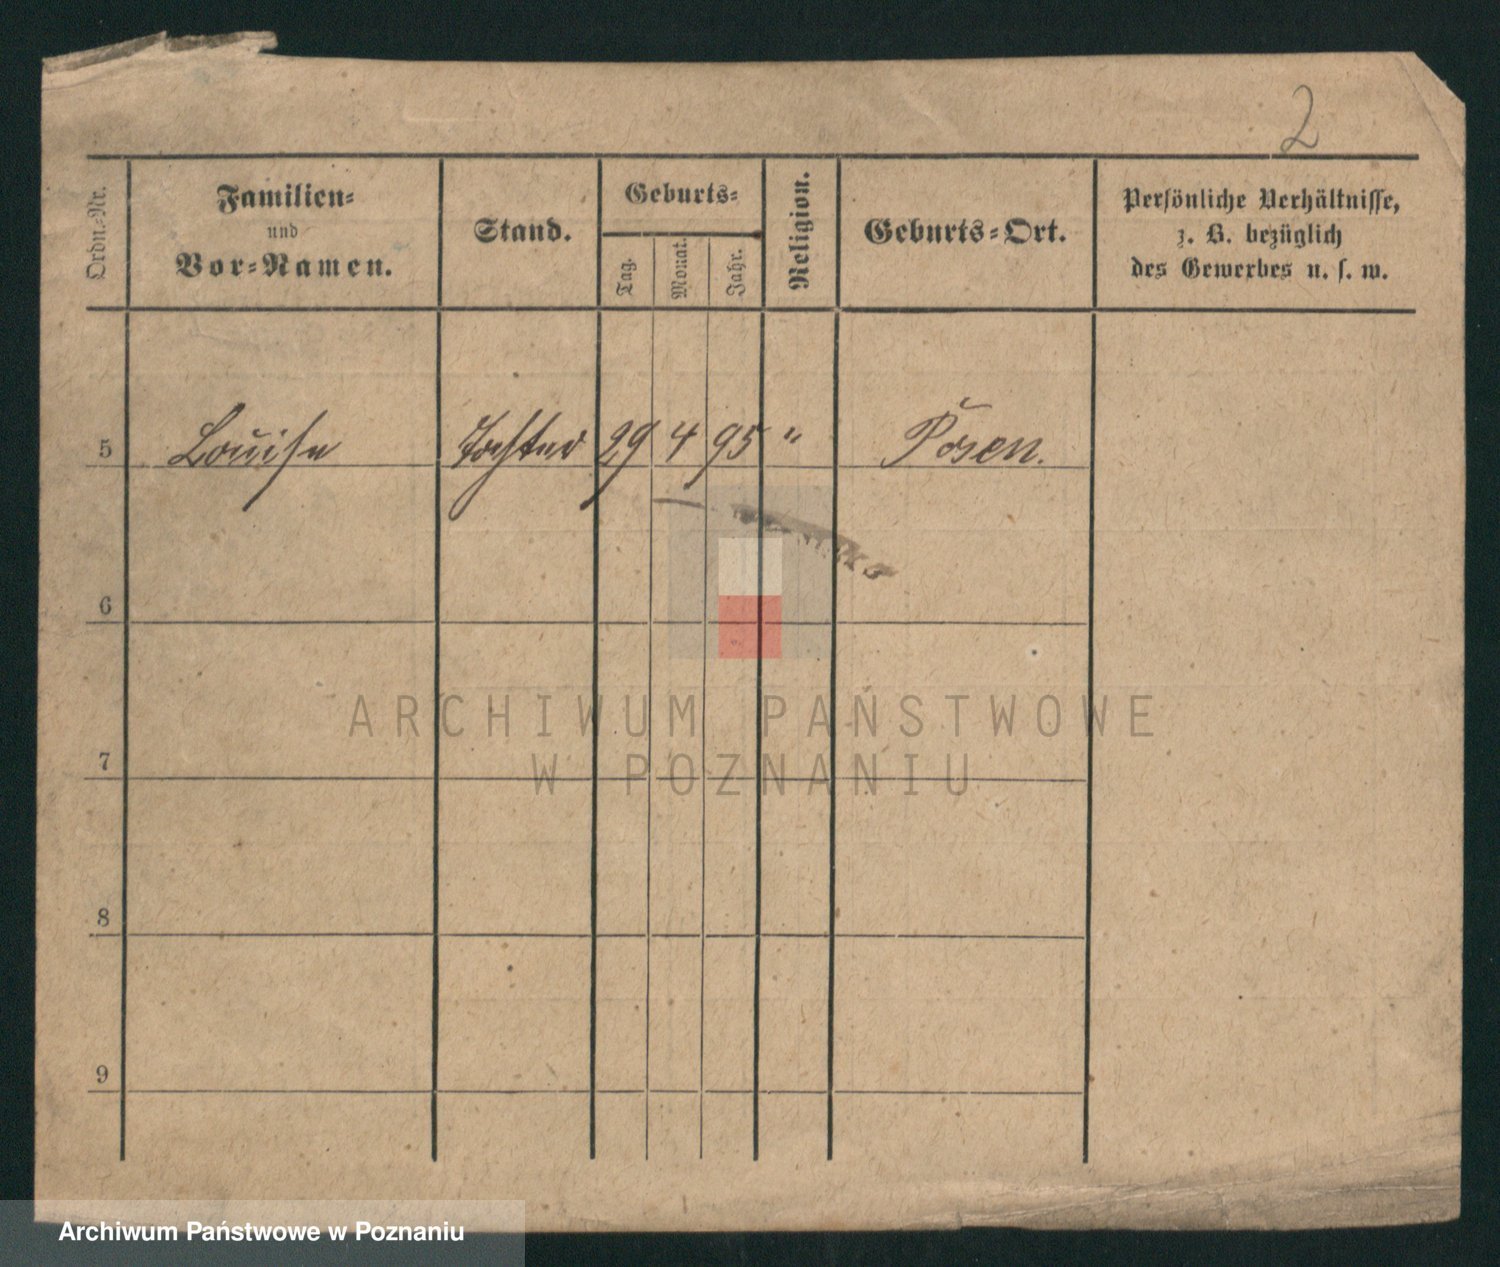 2
Ordn.-Nr.
Familien-
und
Vor-Namen.
Stand.
Geburts-
Tag.
Monat.
Jahr.
Religion.
Geburts-Ort.
Persönliche Verhältnisse,
z. B. bezüglich
des Gewerbes u. s. w.
5 Louise Tochter 29 4 95 " Posen.
6
7
8
9
ARCHIWUM PAŃSTWOWE
W POZNANIU
Archiwum Państwowe w Poznaniu